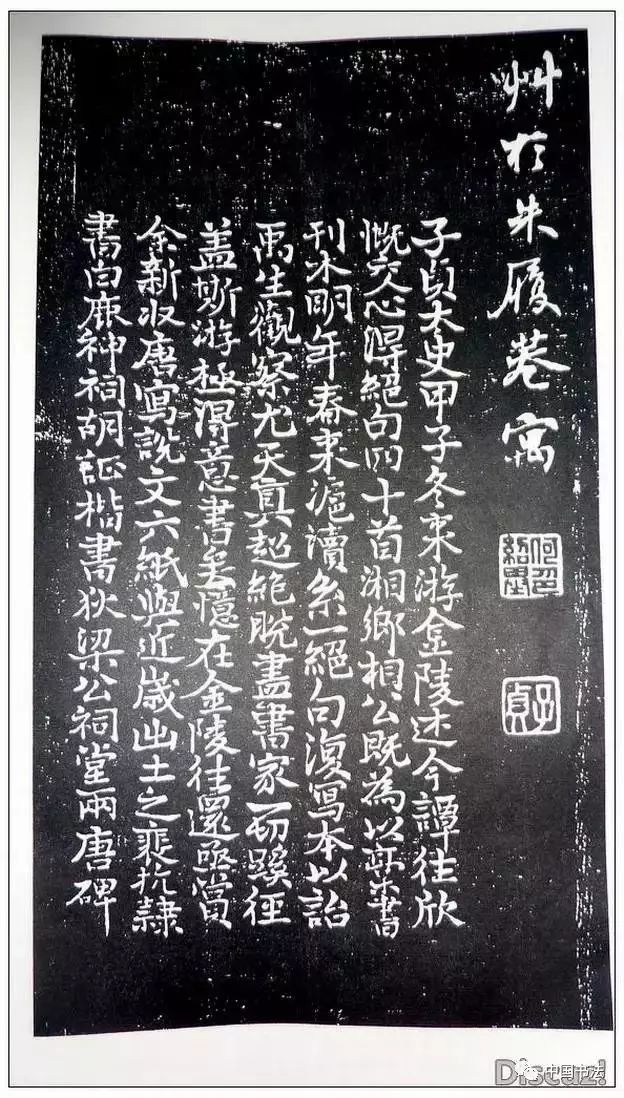 艸於朱履巷寓
何印紹基
子貞
子貞太史甲子冬來游金陵述今譚往欣
慨交心得絕句四十首湘鄉相公既為以書
刊木明年春來滬瀆系一絕句復寫本以詒
禹生觀察尤天真超絕脫盡書家一切蹊徑
蓋斯游極得意書矣憶在金陵往還亟賞
余新收唐寫說文六紙與近歲出土之裴抗隸
書白鹿神祠胡証楷書狄梁公祠堂兩唐碑
Discuz!
中国书法